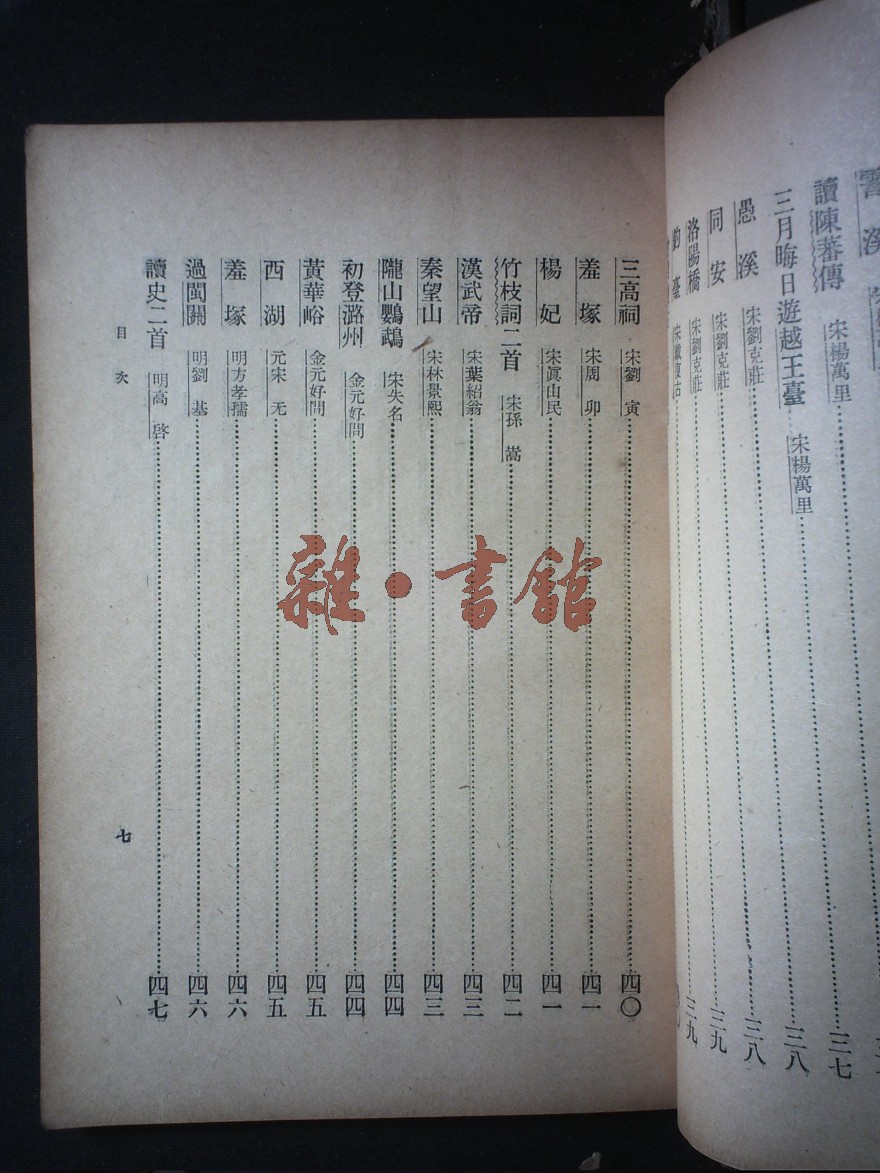 讀陳蕃傳 宋楊萬里 三七
三月晦日遊越王臺 宋楊萬里 三八
愚溪 宋劉克莊 三八
同安 宋劉克莊 三九
洛陽橋 宋劉克莊 三九
釣臺 宋戴復古
三高祠 宋劉寅 四〇
羞塚 宋周卯 四一
楊妃 宋眞山民 四一
竹枝詞二首 宋孫嵩 四二
漢武帝 宋葉紹翁 四三
秦望山 宋林景熙 四三
隴山鸚鵡 宋失名 四四
初登潞州 金元好問 四四
黃華峪 金元好問 四五
西湖 元宋无 四五
羞塚 明方孝孺 四六
過閩關 明劉基 四六
讀史二首 明高啓 四七
目次
七
雜·書館